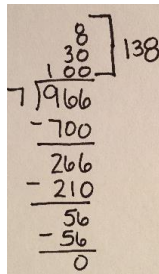 8
30
100 ] 138
7 )966
-700
266
- 210
56
- 56
0